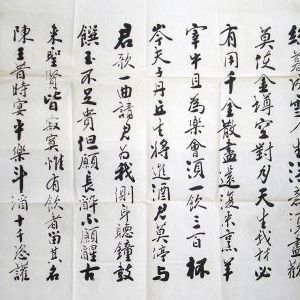 莫使金樽空對月天生我材必
有用千金散盡還復來烹羊
宰牛且為樂會須一飲三百杯
岑夫子丹丘生將進酒君莫停与
君歌一曲請君為我側耳聽鐘鼓
饌玉不足貴但願長醉不願醒古
來聖賢皆寂寞惟有飲者留其名
陳王昔時宴平樂斗酒十千恣讙